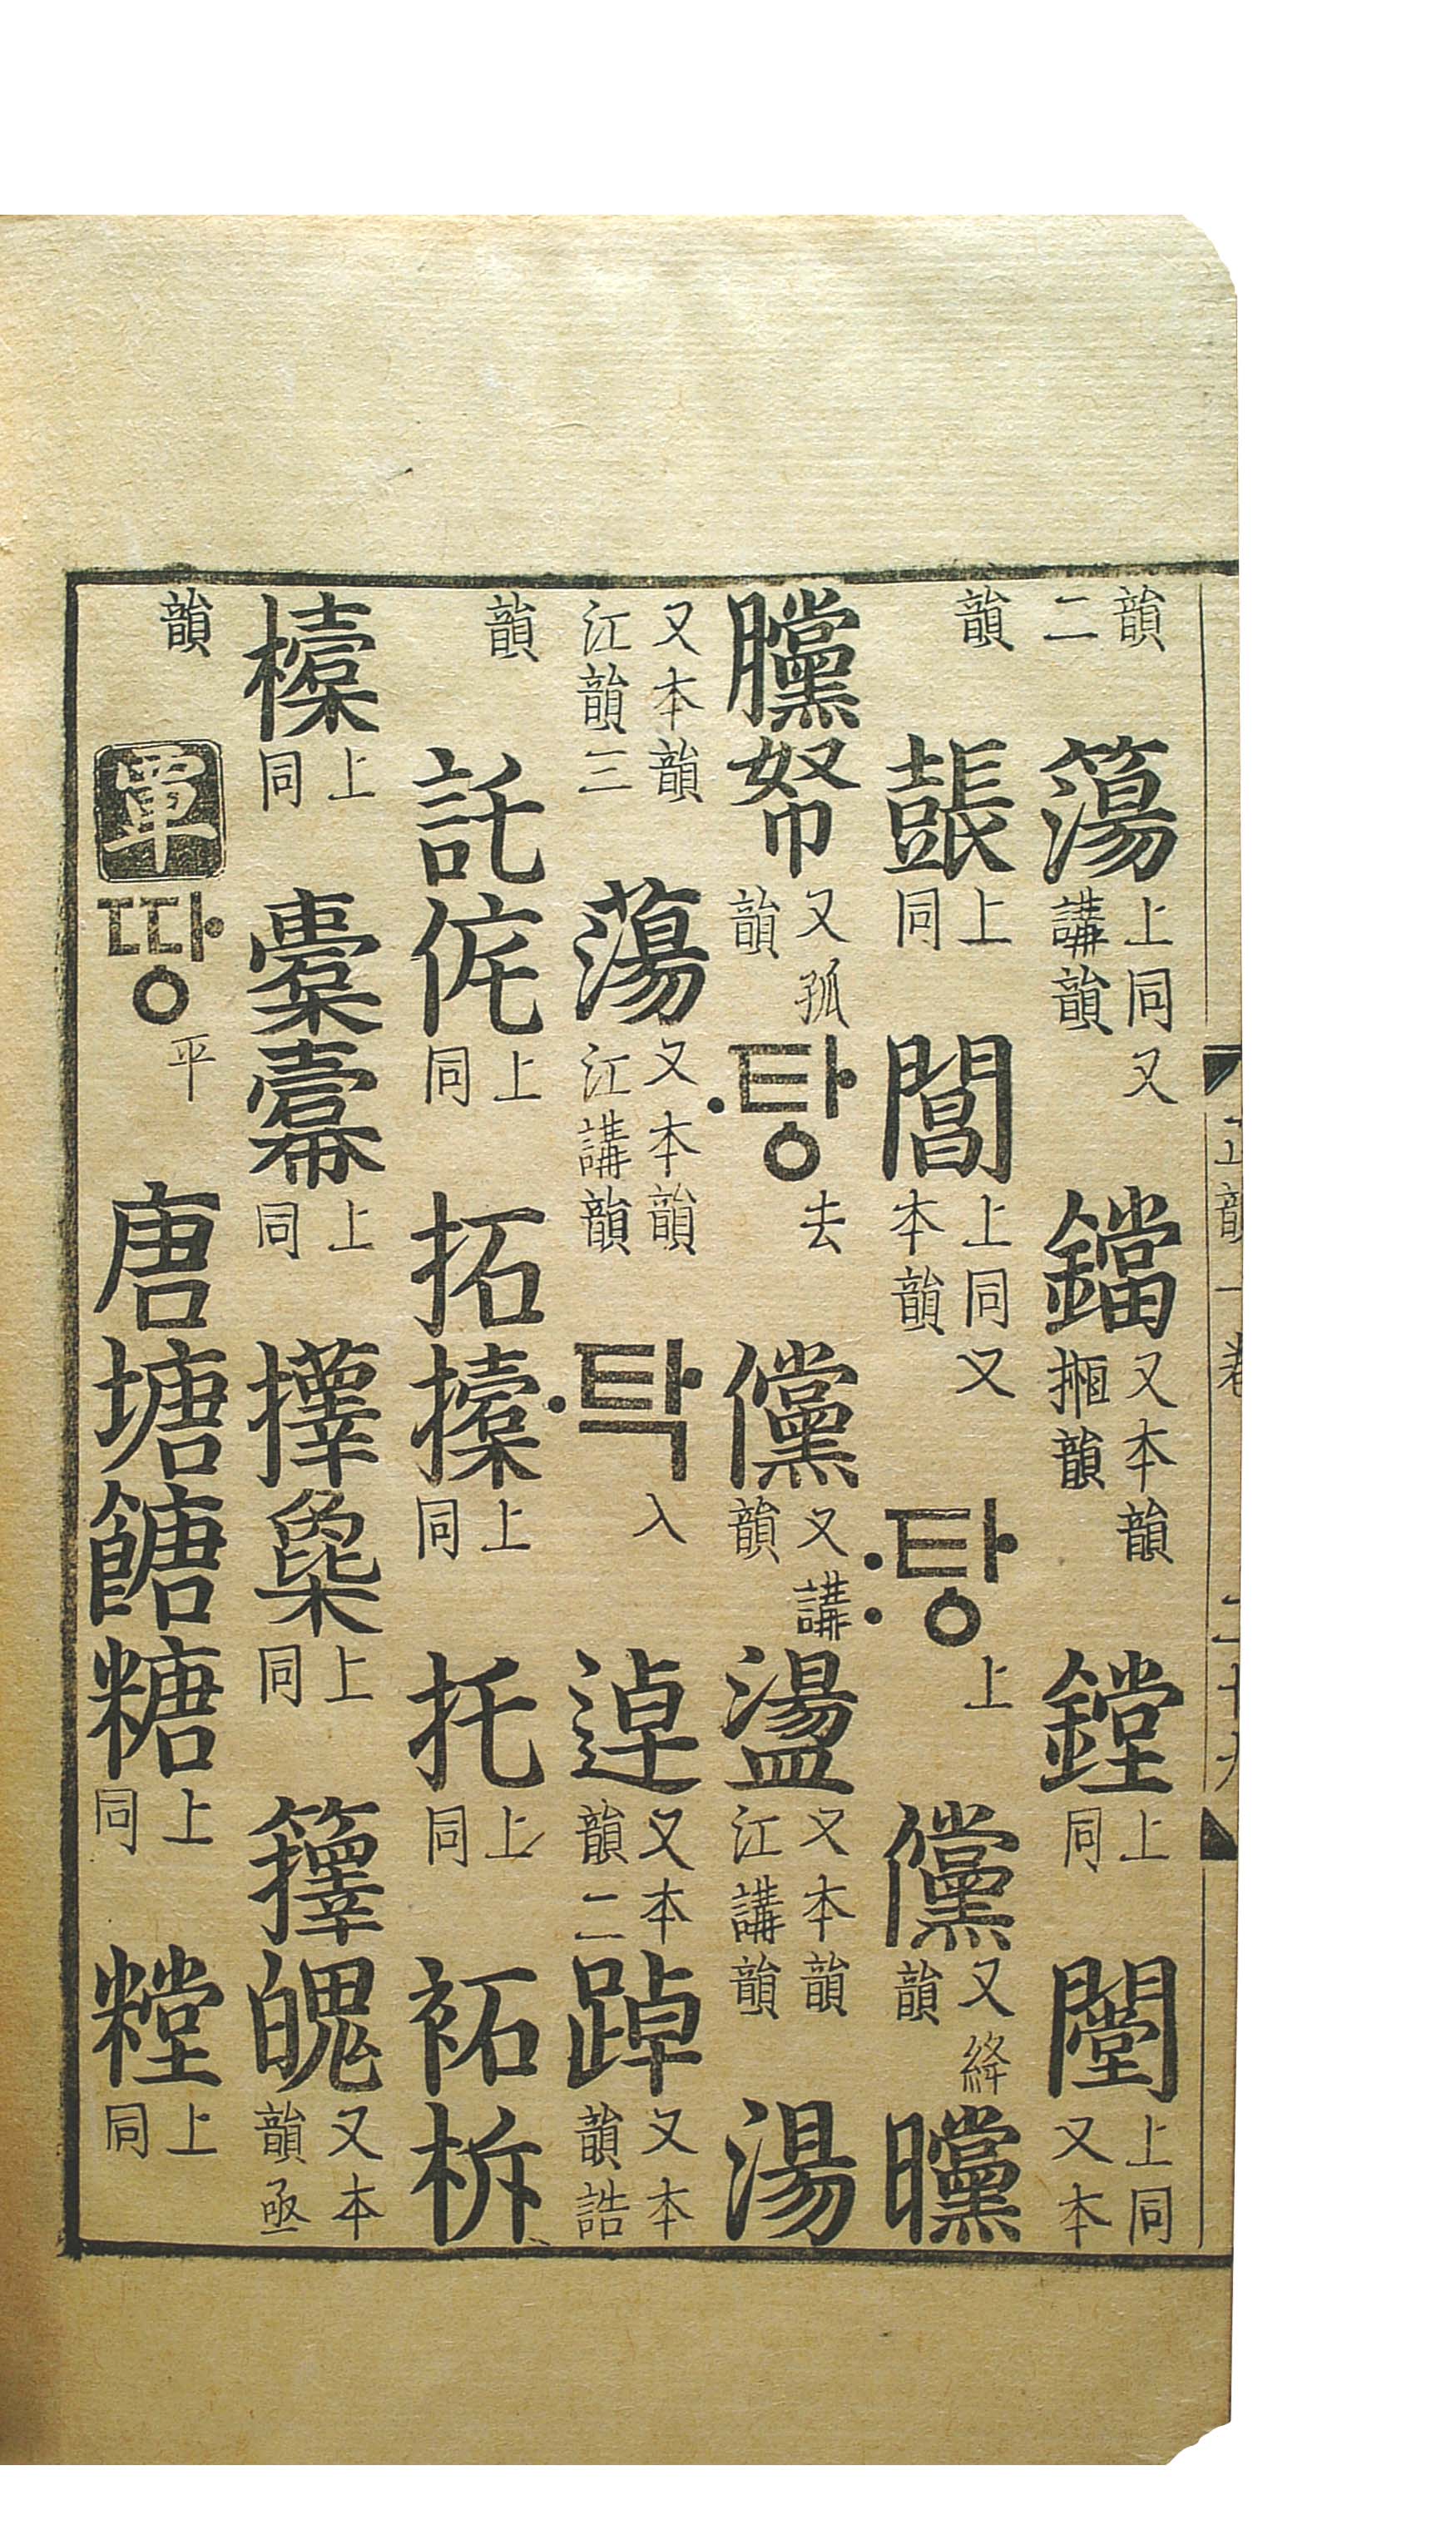 正韻一 卷
韻二簜上同又講韻鐺又本韻搄韻鏜上同闛上同又本
韻上同閶上同又本韻:탕上儻又絳韻曭
帑又孤韻·탕去儻又講韻盪又本韻江講韻湯
又本韻江韻三蕩又本韻江講韻·탁入逴又本韻二踔又本韻誥
韻託侂上同拓上同托上同袥柝
㯱上同橐上同擇上同籜魄又本韻亟
韻覃땅平唐塘餹糖上同糛上同